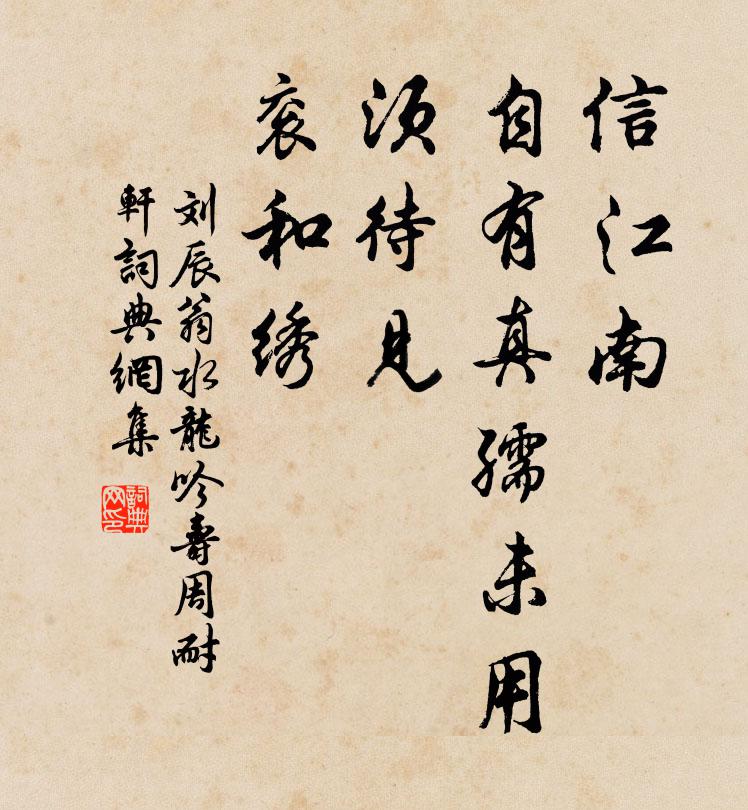 信江南
自有真孺未用
须待见
衮和绣
刘辰翁水龍吟壽周耐
軒詞典網集
詞典
网印